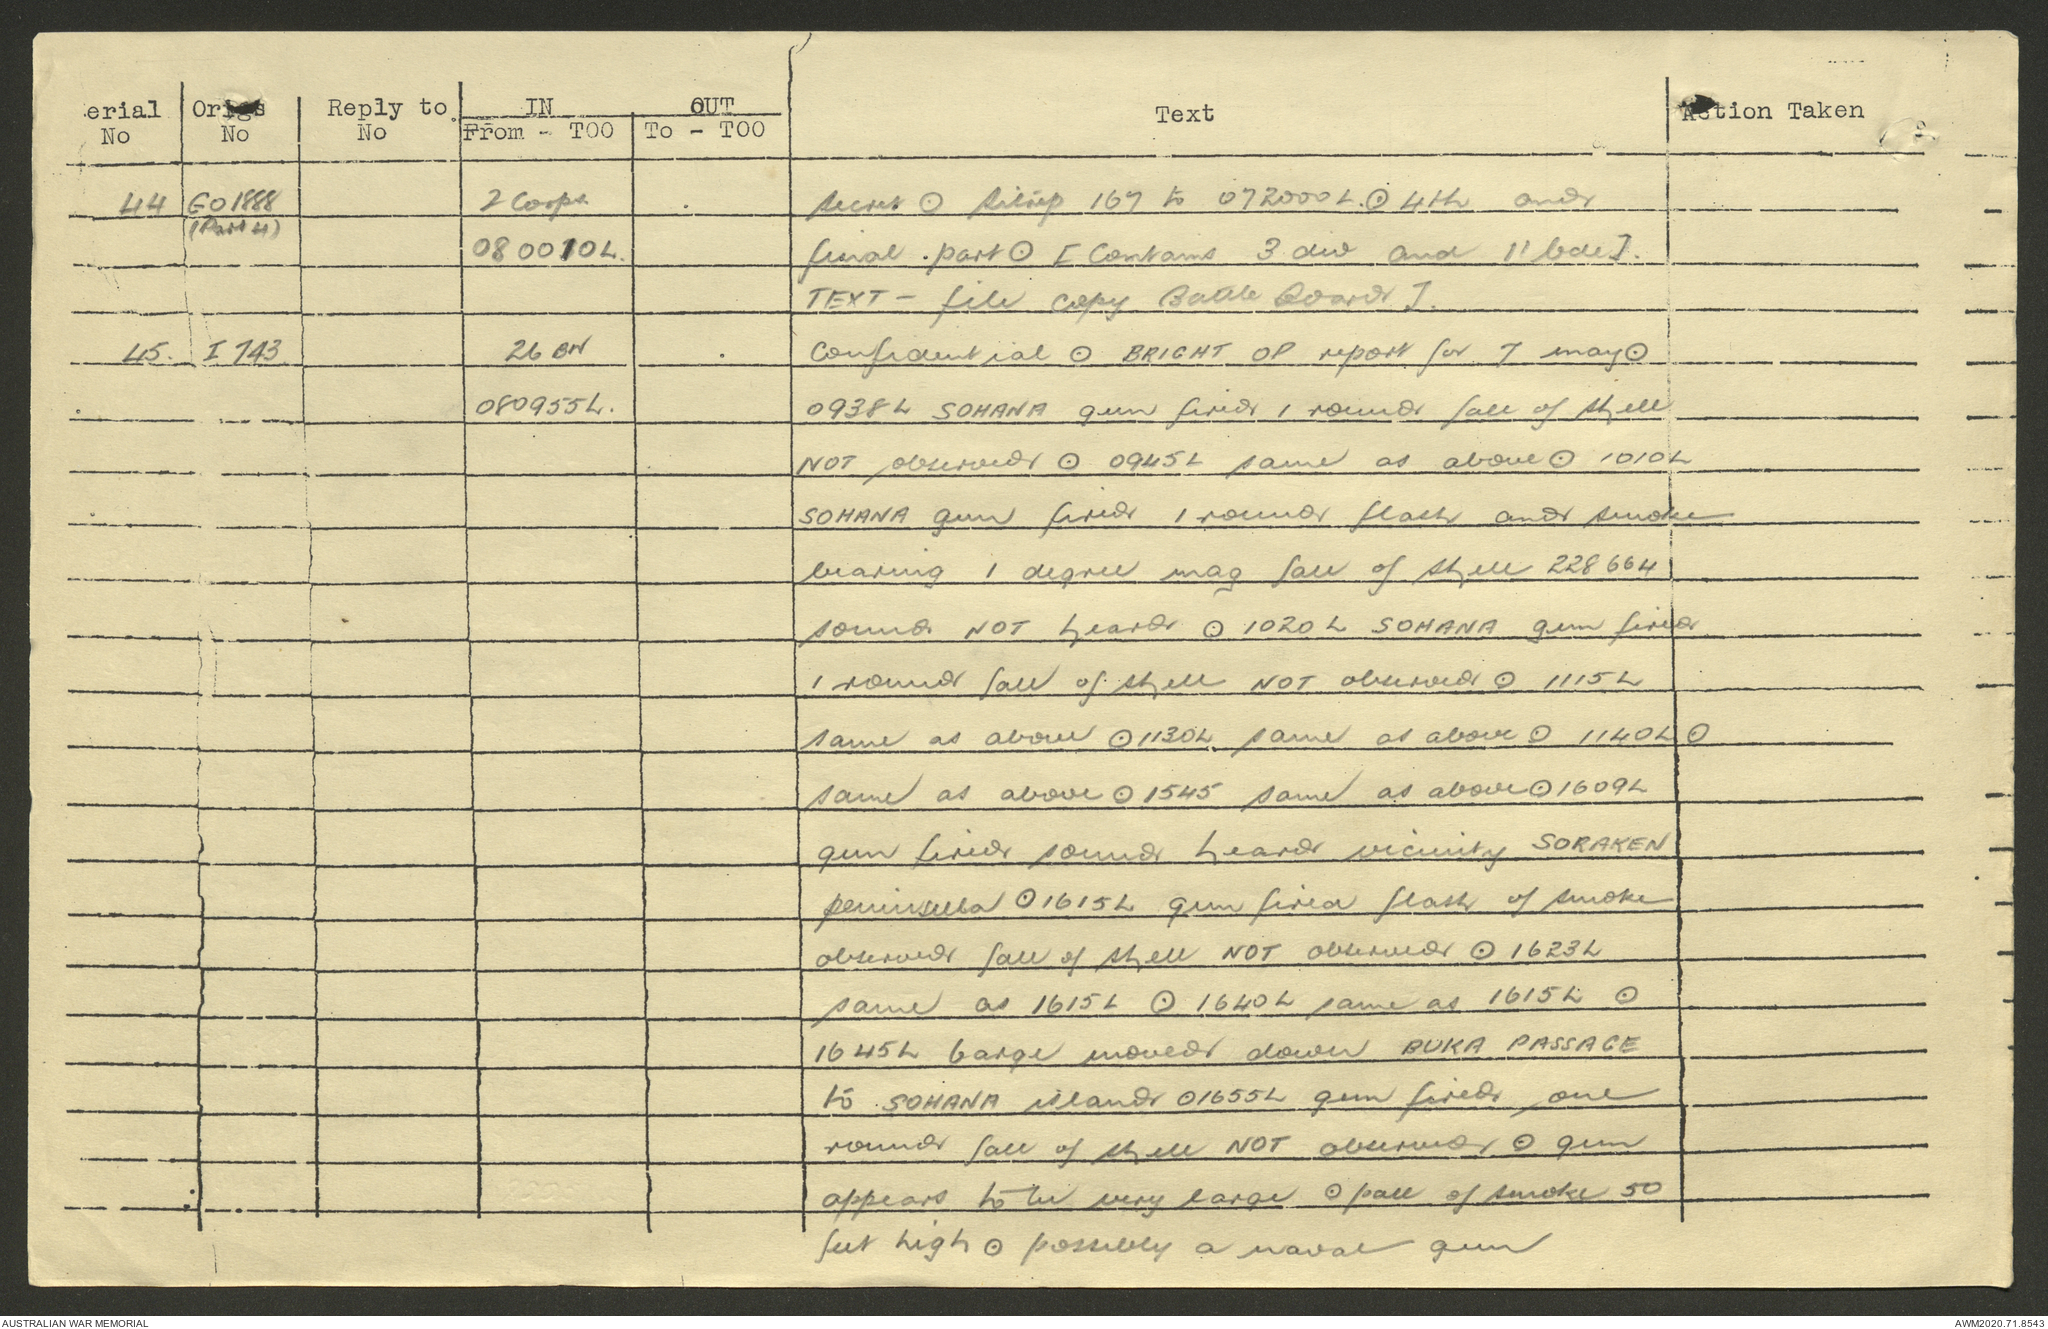 erial No | Origs No | Reply to No | IN From - TOO | OUT To - TOO | Text | Action Taken
44 | GO1888 (Part 4) | 2 Corps 080010L. | secret ⊙ sitrep 167 to 072000L ⊙ 4th and
final part ⊙ [Contains 3 div and 11 bde].
TEXT - file copy Battle Board].
45. | I 743 | 26 BN | Confidential ⊙ BRIGHT OP report for 7 may ⊙
080955L. | 0938L SOHANA gun fired 1 round fall of shell
NOT observed ⊙ 0945L same as above ⊙ 1010L
SOHANA gun fired 1 round flash and smoke
bearing 1 degree mag fall of shell 228664
sound NOT heard ⊙ 1020L SOHANA gun fired
1 round fall of shell NOT observed ⊙ 1115L
same as above ⊙ 1130L same as above ⊙ 1140L ⊙
same as above ⊙ 1545 same as above ⊙ 1609L
gun fired sound heard vicinity SORAKEN
peninsula ⊙ 1615L gun fired flash of smoke
observed fall of shell NOT observed ⊙ 1623L
same as 1615L ⊙ 1640L same as 1615L ⊙
1645L barge moved down BUKA PASSAGE
to SOHANA island ⊙ 1655L gun fired one
round fall of shell NOT observed ⊙ gun
appears to be very large ⊙ pall of smoke 50
feet high ⊙ possibly a naval gun
AUSTRALIAN WAR MEMORIAL
AWM2020.71.8543